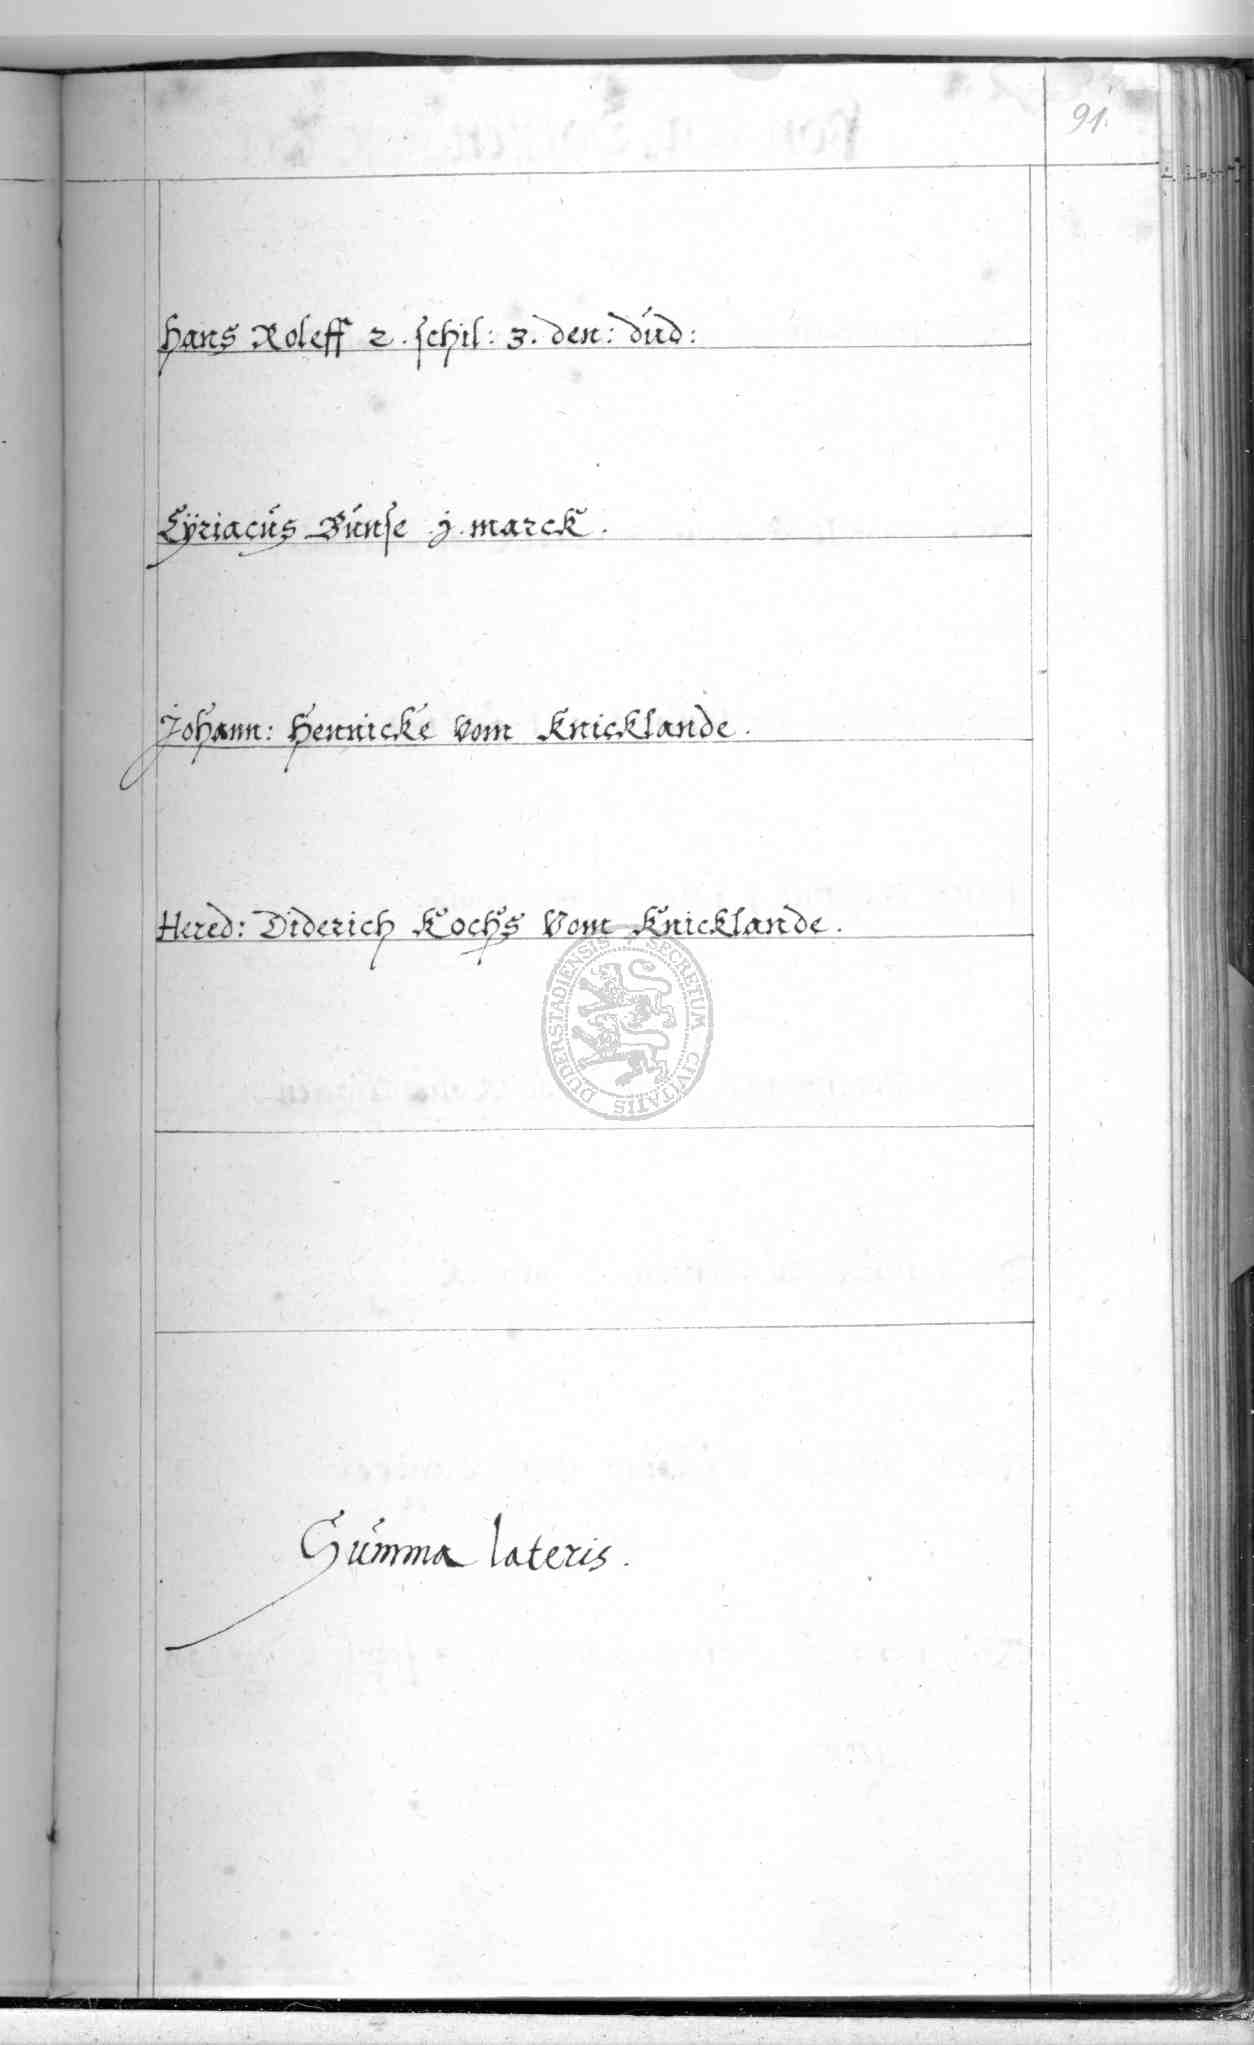 91.
Hans Roleff 2. schil: 3. den: dud:
Cÿriacus Bunse .j. marck.
Johann: Hennicke vom Knicklande.
Hered: Diderich Kochs vom Knicklande.
SECRETUM CIVITATIS DUDERSTADIENSIS
Summa lateris.